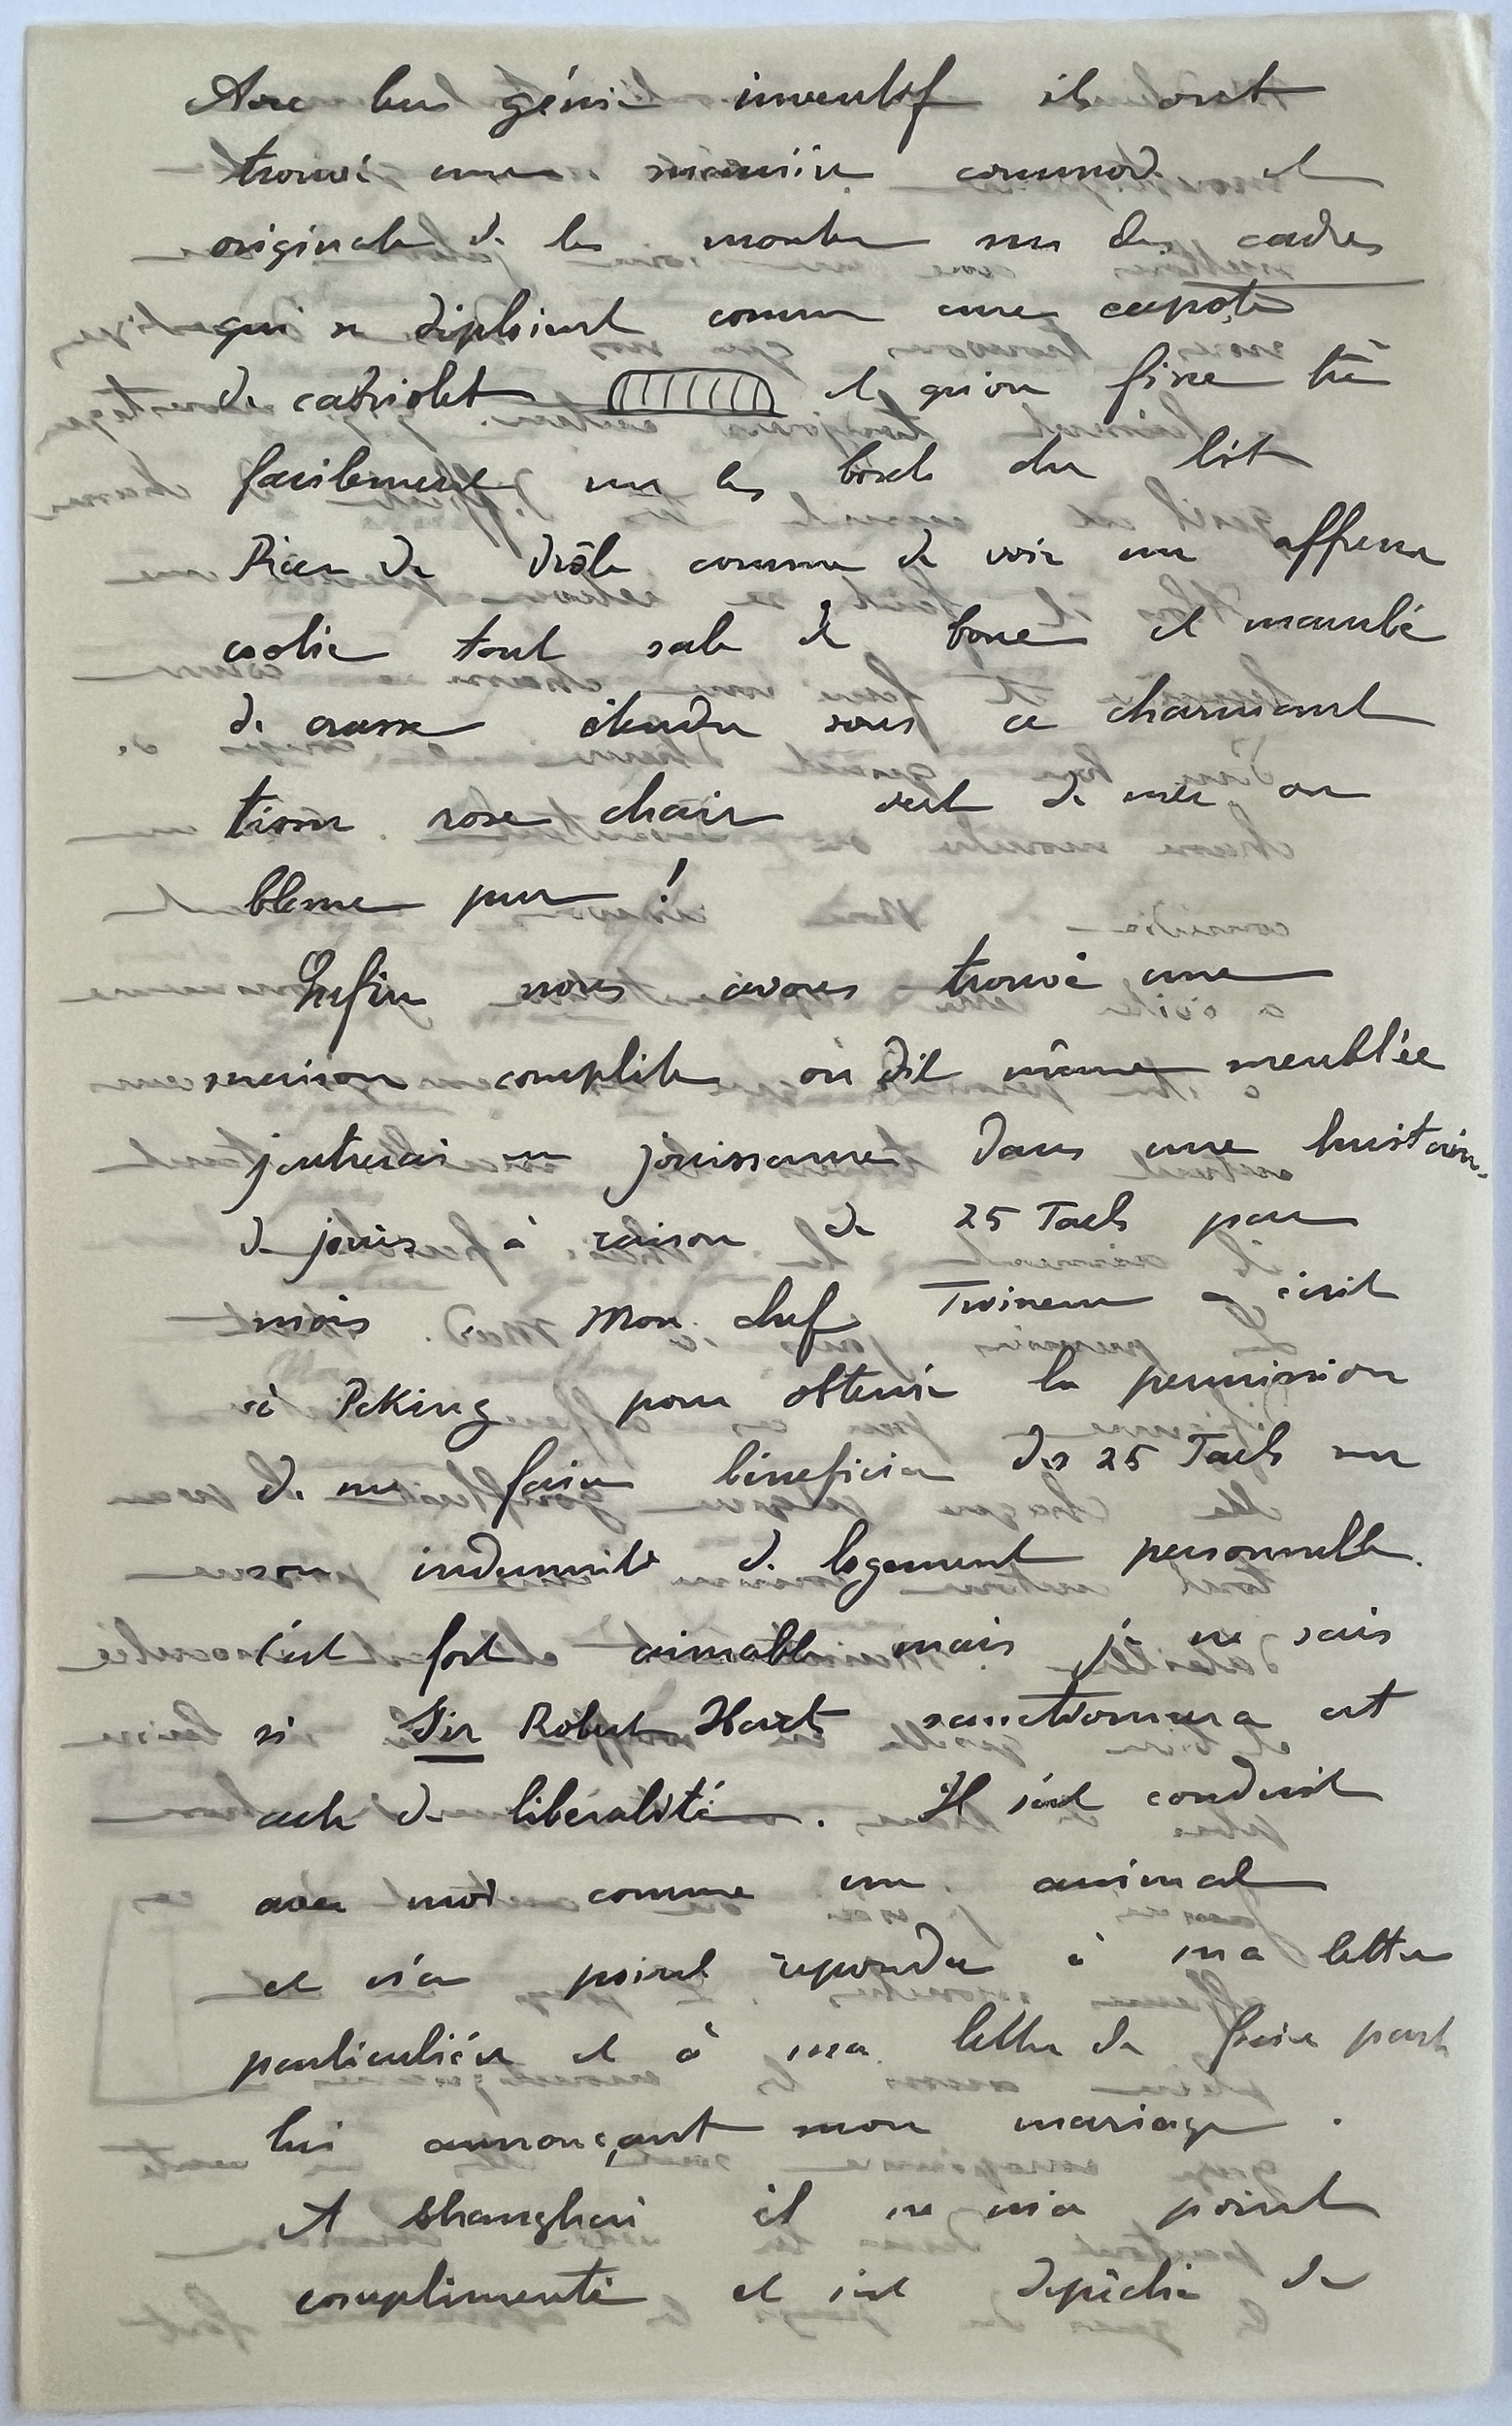 Avec leur génie inventif ils ont
trouvé une manière commode et
originale de les monter sur des cadres
qui se déploient comme une capote
de cabriolet et qu'on fixe très
facilement sur les bords du lit
Rien de drôle comme de voir un affreux
coolie tout sale de boue et maculé
de crasse étendu sous ce charmant
tissu rose chair vert de mer ou
bleme pur !
Enfin nous avons trouvé une
maison complète on dit même meublée
j'entrerai en jouissance dans une huitaine
de jours à raison de 25 Taels par
mois. Mon chef Twinem a écrit
à Peking pour obtenir la permission
de me faire bénéficier des 25 Taels sur
son indemnité de logement personnelle.
c'est fort aimable mais je ne sais
si Sir Robert Hart sanctionnera cet
acte de libéralité. Il s'est conduit
avec moi comme un animal
et n'a point répondu à ma lettre
particulière et à ma lettre de faire part
lui annonçant mon mariage.
A Shanghai il ne m'a point
complimenté et s'est dépêché de